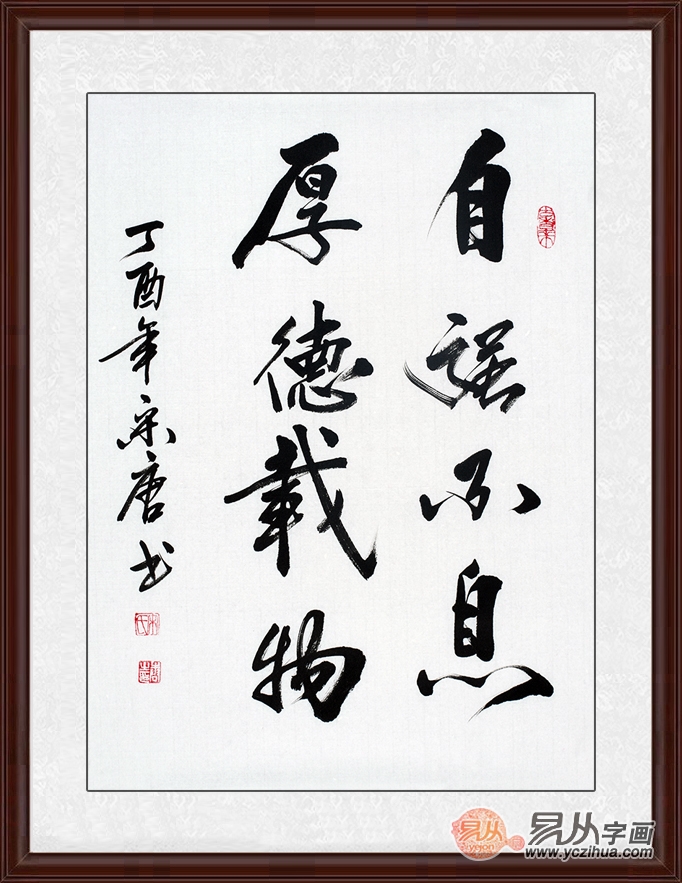 自强不息
厚德载物
丁酉年宋唐书
易从
易从字画
www.yczihua.com